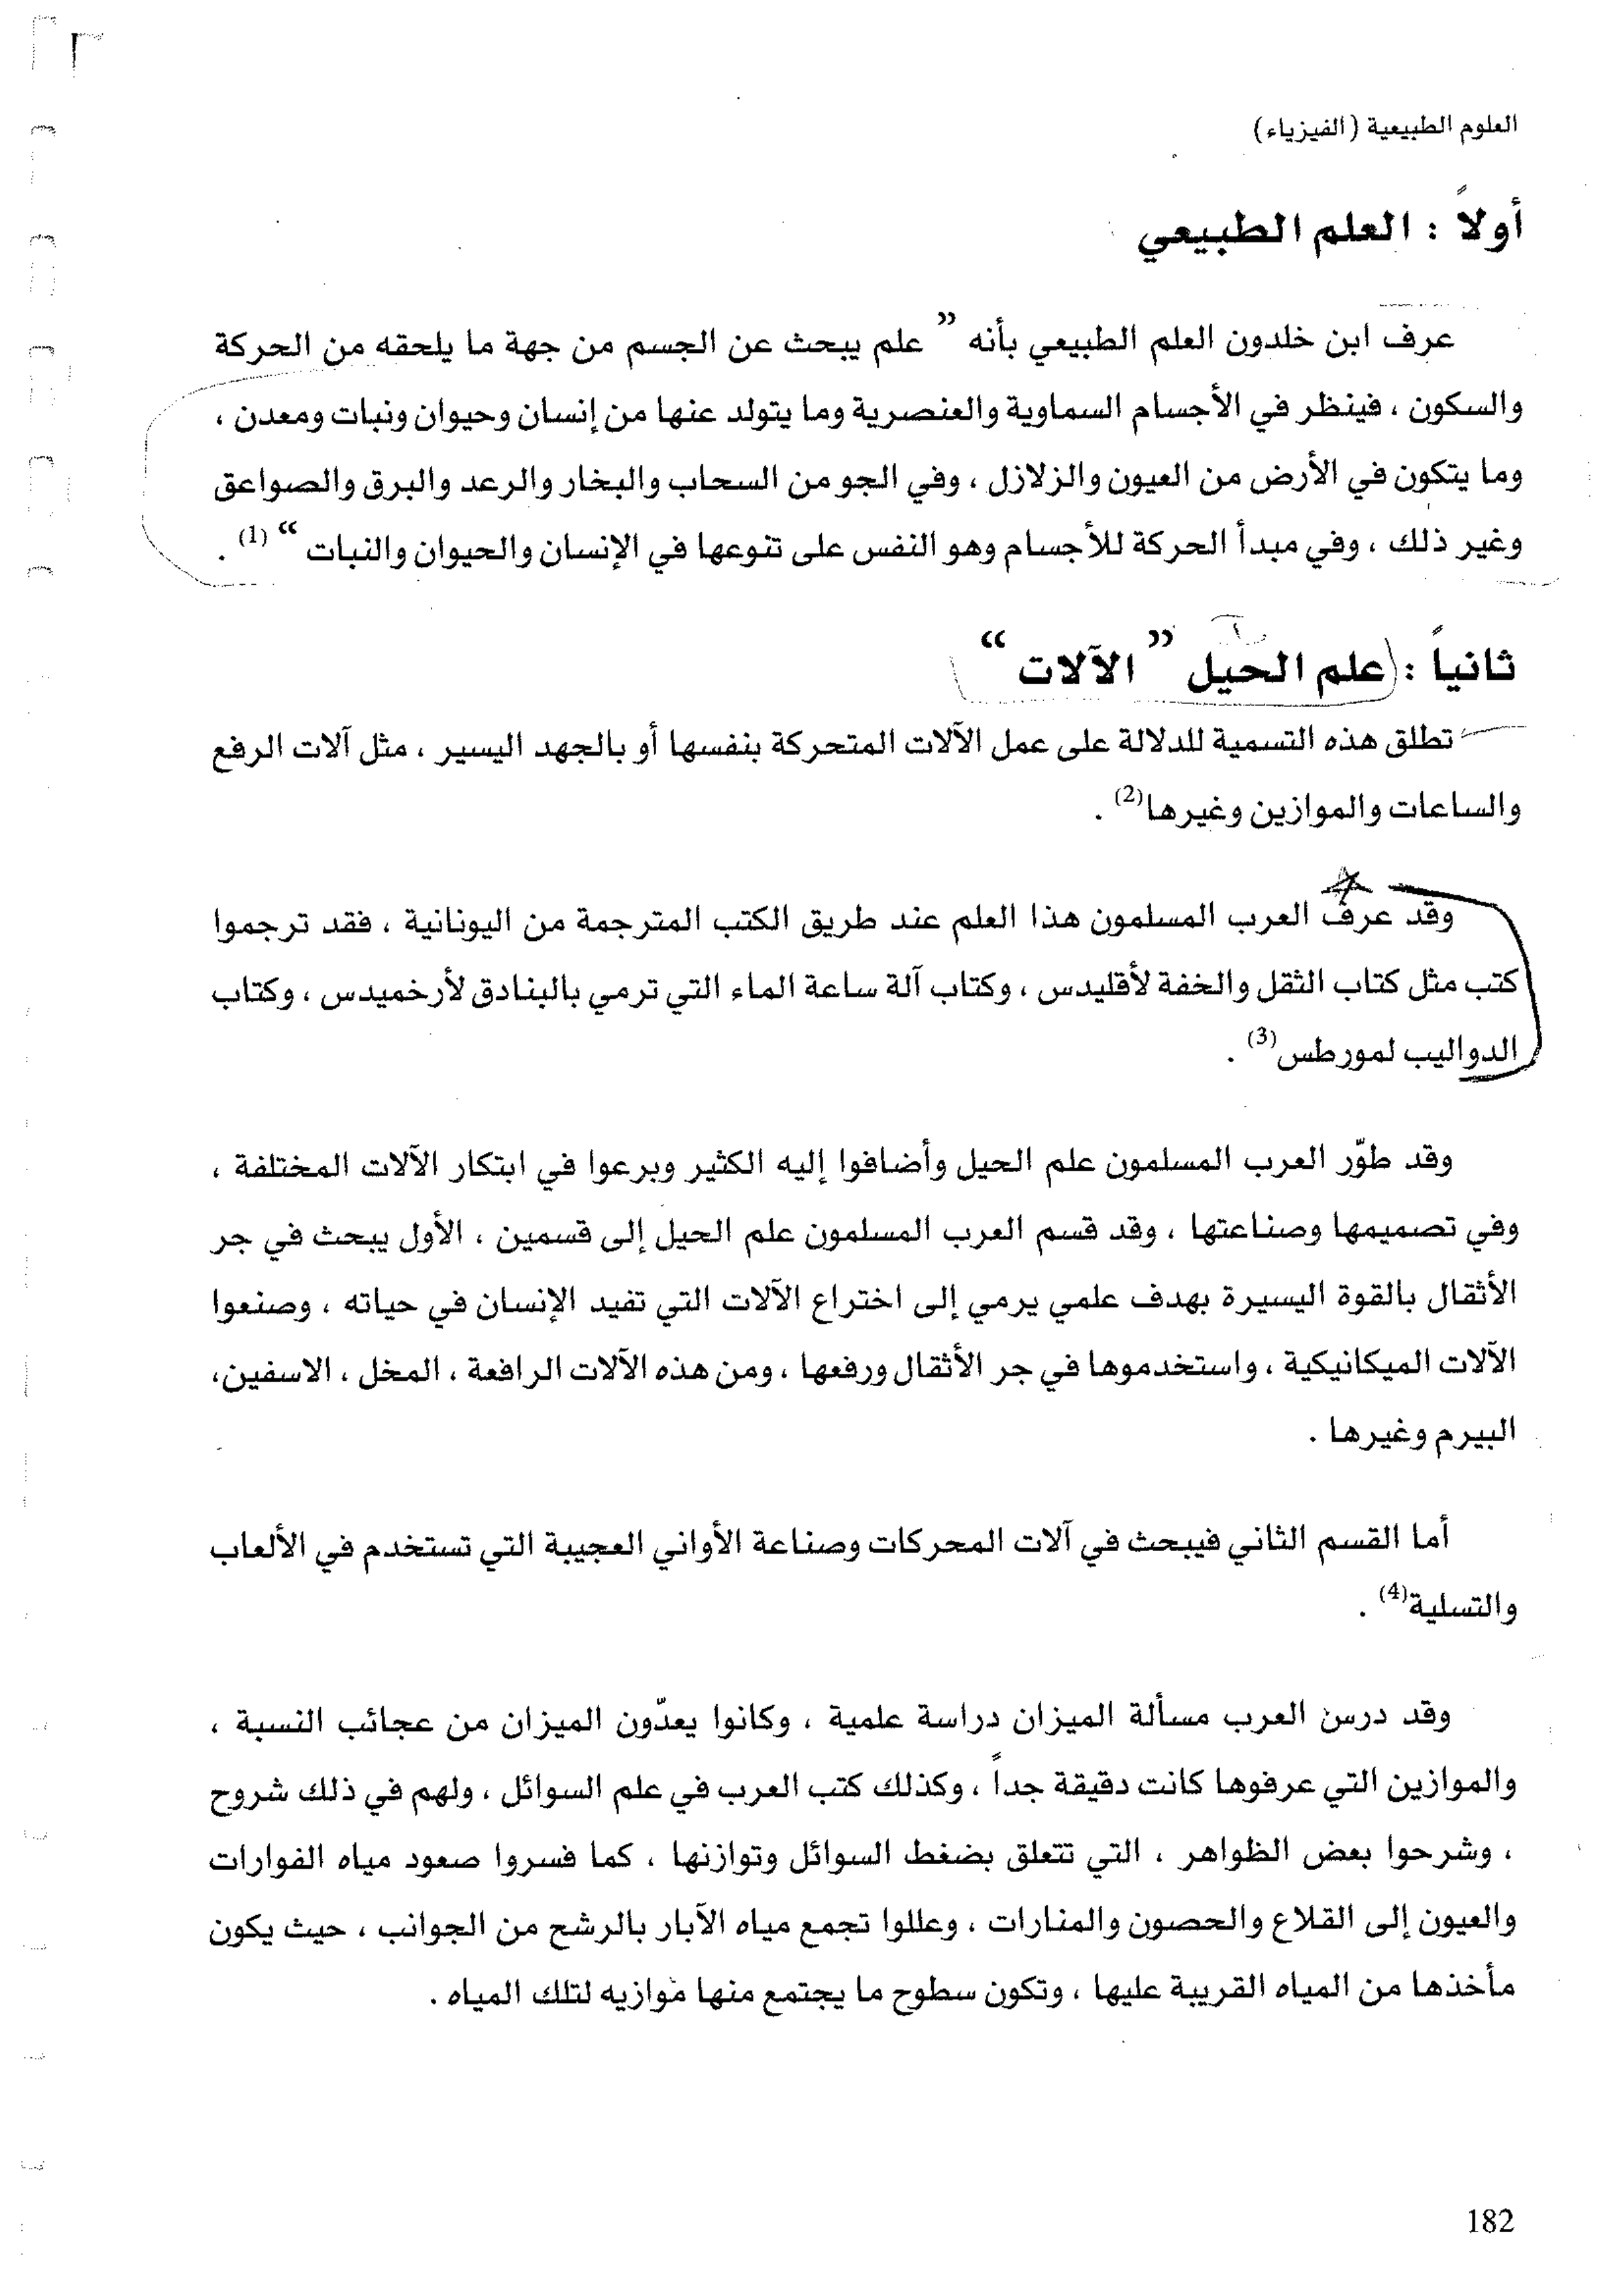 العلوم الطبيعية (الفيزياء)
أولاً : العلم الطبيعي
عرف ابن خلدون العلم الطبيعي بأنه " علم يبحث عن الجسم من جهة ما يلحقه من الحركة
والسكون ، فينظر في الأجسام السماوية والعنصرية وما يتولد عنها من إنسان وحيوان ونبات ومعدن ،
وما يتكون في الأرض من العيون والزلازل ، وفي الجو من السحاب والبخار والرعد والبرق والصواعق
وغير ذلك ، وفي مبدأ الحركة للأجسام وهو النفس على تنوعها في الإنسان والحيوان والنبات " (1) .
ثانياً : علم الحيل " الآلات "
تطلق هذه التسمية للدلالة على عمل الآلات المتحركة بنفسها أو بالجهد اليسير ، مثل آلات الرفع
والساعات والموازين وغيرها(2) .
وقد عرف العرب المسلمون هذا العلم عند طريق الكتب المترجمة من اليونانية ، فقد ترجموا
كتب مثل كتاب الثقل والخفة لأقليدس ، وكتاب آلة ساعة الماء التي ترمي بالبنادق لأرخميدس ، وكتاب
الدواليب لمورطس(3) .
وقد طوّر العرب المسلمون علم الحيل وأضافوا إليه الكثير وبرعوا في ابتكار الآلات المختلفة ،
وفي تصميمها وصناعتها ، وقد قسم العرب المسلمون علم الحيل إلى قسمين ، الأول يبحث في جر
الأثقال بالقوة اليسيرة بهدف علمي يرمي إلى اختراع الآلات التي تفيد الإنسان في حياته ، وصنعوا
الآلات الميكانيكية ، واستخدموها في جر الأثقال ورفعها ، ومن هذه الآلات الرافعة ، المخل ، الاسفين،
البيرم وغيرها .
أما القسم الثاني فيبحث في آلات المحركات وصناعة الأواني العجيبة التي تستخدم في الألعاب
والتسلية(4) .
وقد درس العرب مسألة الميزان دراسة علمية ، وكانوا يعدّون الميزان من عجائب النسبة ،
والموازين التي عرفوها كانت دقيقة جداً ، وكذلك كتب العرب في علم السوائل ، ولهم في ذلك شروح
، وشرحوا بعض الظواهر ، التي تتعلق بضغط السوائل وتوازنها ، كما فسروا صعود مياه الفوارات
والعيون إلى القلاع والحصون والمنارات ، وعللوا تجمع مياه الآبار بالرشح من الجوانب ، حيث يكون
مأخذها من المياه القريبة عليها ، وتكون سطوح ما يجتمع منها موازيه لتلك المياه .
182